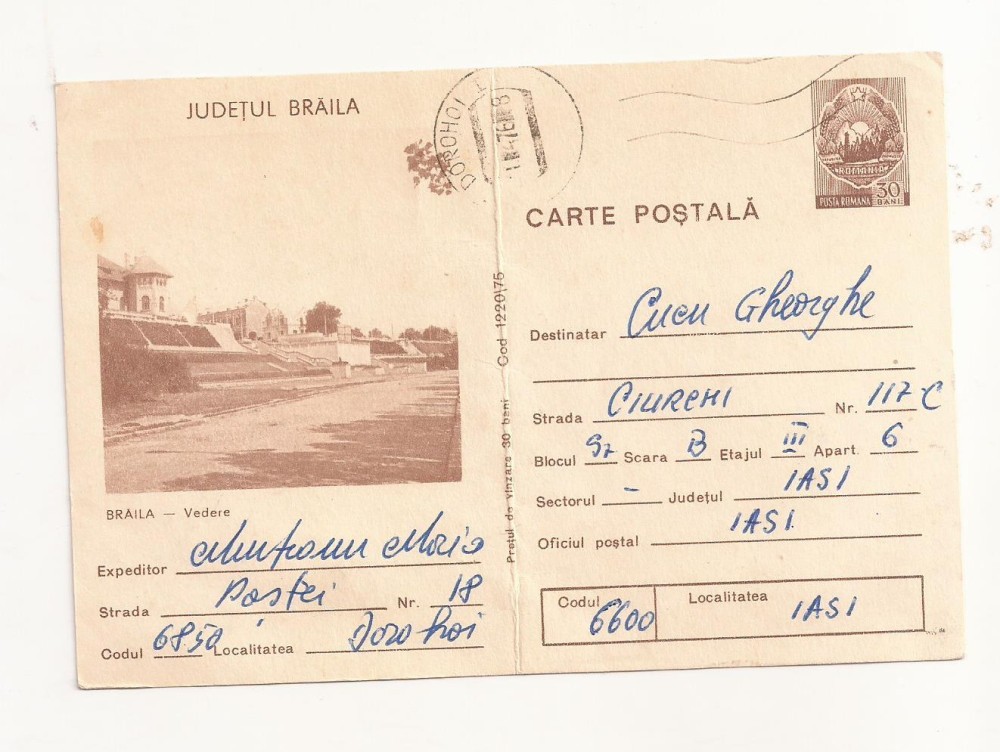 JUDEȚUL BRĂILA
DOROHOI
ROMANIA
POSTA ROMANA 30 BANI
CARTE POȘTALĂ
Destinatar Cucu Gheorghe
Strada CIURCHI Nr. 117 C
Blocul Scara B Etajul III Apart. 6
Sectorul – Județul IASI
Oficiul poștal IASI
Codul 6600 Localitatea IASI
Prețul de vînzare 30 bani Cod 1220/75
BRĂILA — Vedere
Expeditor Munteanu Maria
Strada Poștei Nr. 18
Codul 6850 Localitatea Dorohoi